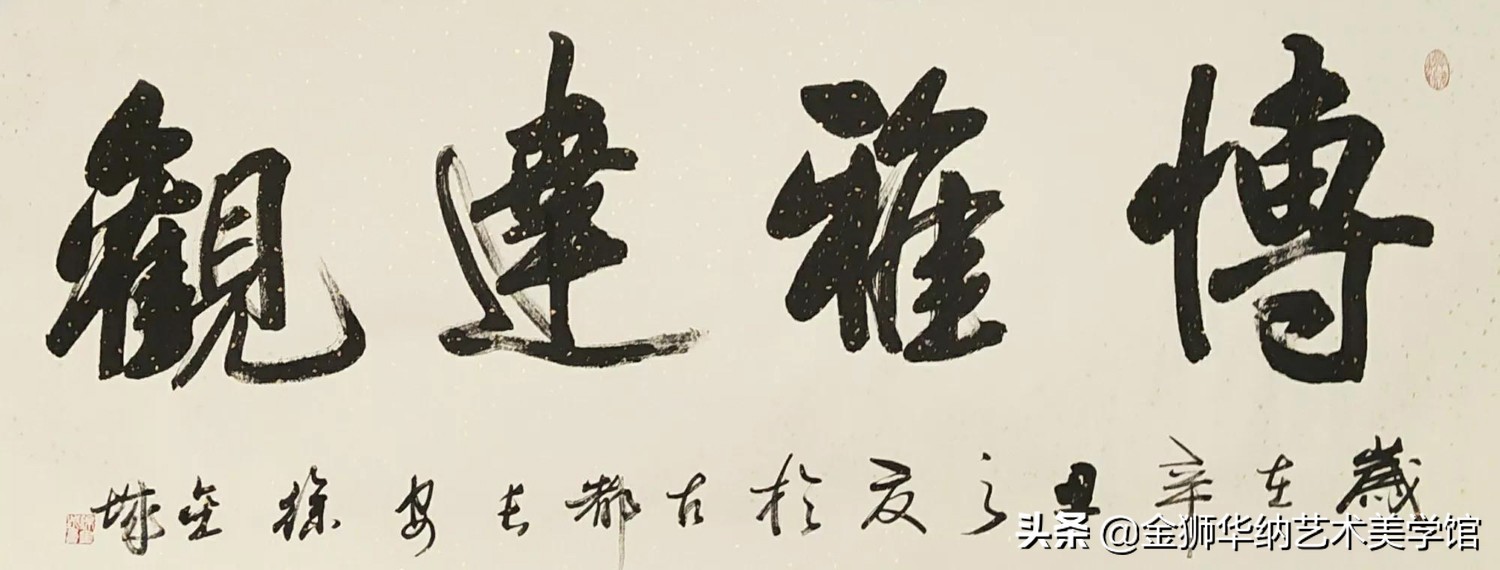 博雅達觀
歲在辛丑之夏於古都長安徐金城
头条 @金狮华纳艺术美学馆